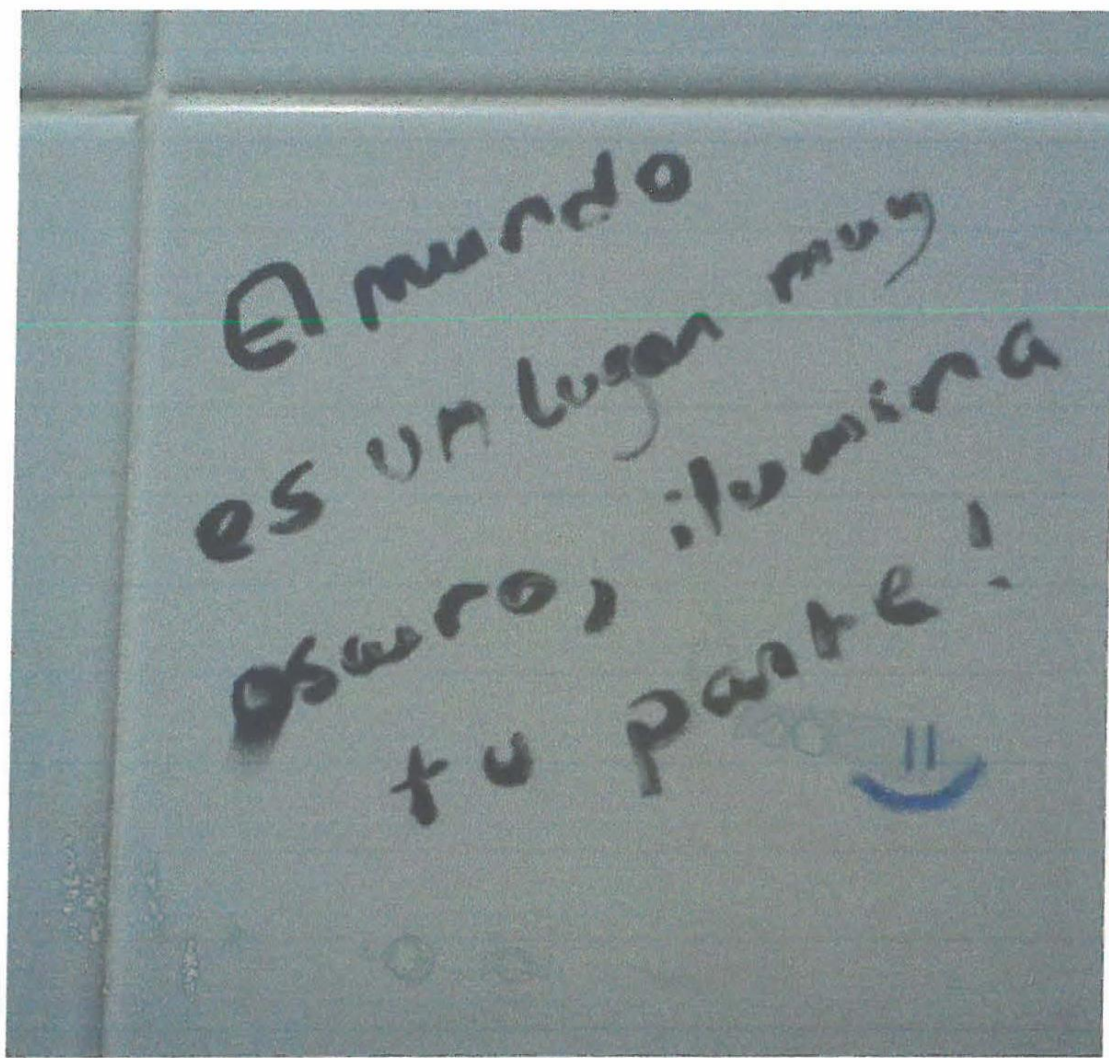 El mundo
es un lugar muy
oscuro, ilumina
tu parte!